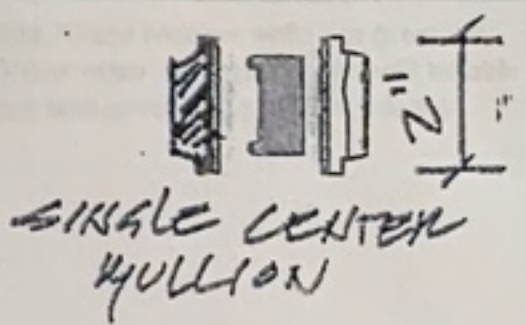 2"
SINGLE CENTER
MULLION